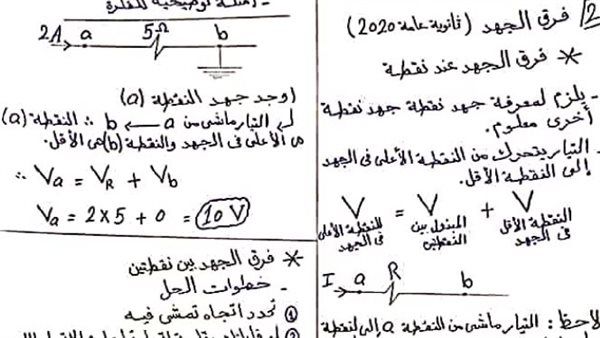 2 فرق الجهد (ثانوية عامة 2020)
* فرق الجهد عند نقطة
- يلزم لمعرفة جهد نقطة جهد نقطة
أخرى معلوم.
- التيار يتحرك من النقطة الأعلى فى الجهد
إلى النقطة الأقل.
V = V + V
للنقطة الأعلى فى الجهد
المبذول بين النقطتين
النقطة الأقل فى الجهد
I a R b
لاحظ: التيار ماشى من النقطة a إلى لنقطة
- أمثلة توضيحية للفكرة
2A a 5Ω b
أوجد جهد النقطة (a)
التيار ماشى من a ← b ∴ النقطة (a)
هى الأعلى فى الجهد والنقطة (b) هى الأقل.
∴ Va = VR + Vb
Va = 2×5 + 0 = 10 V
* فرق الجهد بين نقطتين
- خطوات الحل
① نحدد اتجاه تمشى فيه
②